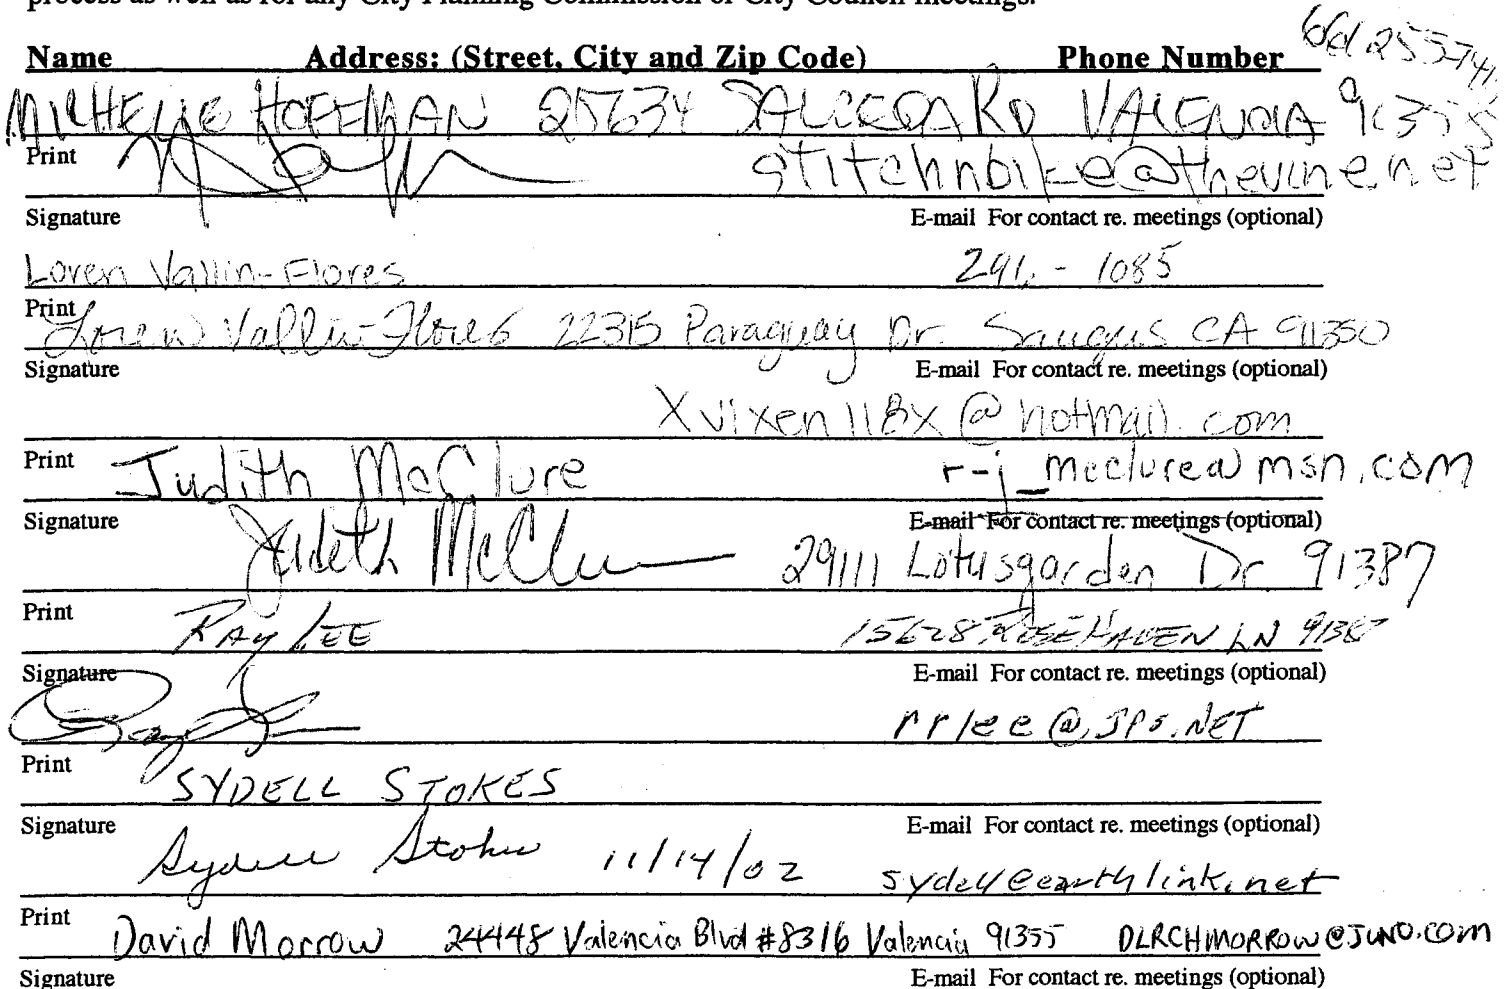 process as well as for any City Planning Commission or City Council meetings.
Name Address: (Street, City and Zip Code) Phone Number
661 255-741
MICHELLE HOFFMAN 25634 SALCEDA RD VALENCIA 91355
Print
stitchnbike@thevine.net
Signature E-mail For contact re. meetings (optional)
Loren Vallin-Flores 296-1085
Print
Loren Vallin-Flores 22315 Paraguay Dr. Saugus CA 91350
Signature E-mail For contact re. meetings (optional)
Xvixen118x@hotmail.com
Print Judith McClure r-j_mcclure@msn.com
Signature E-mail For contact re. meetings (optional)
Judith McClure 29111 Lotusgarden Dr 91387
Print
RAY LEE 15628 ROSEHAVEN LN 91387
Signature E-mail For contact re. meetings (optional)
rrlee@JPS.NET
Print
SYDELL STOKES
Signature E-mail For contact re. meetings (optional)
Sydell Stokes 11/14/02 sydell@earthlink.net
Print
David Morrow 24448 Valencia Blvd #8316 Valencia 91355 DLRCHMORROW@JUNO.COM
Signature E-mail For contact re. meetings (optional)